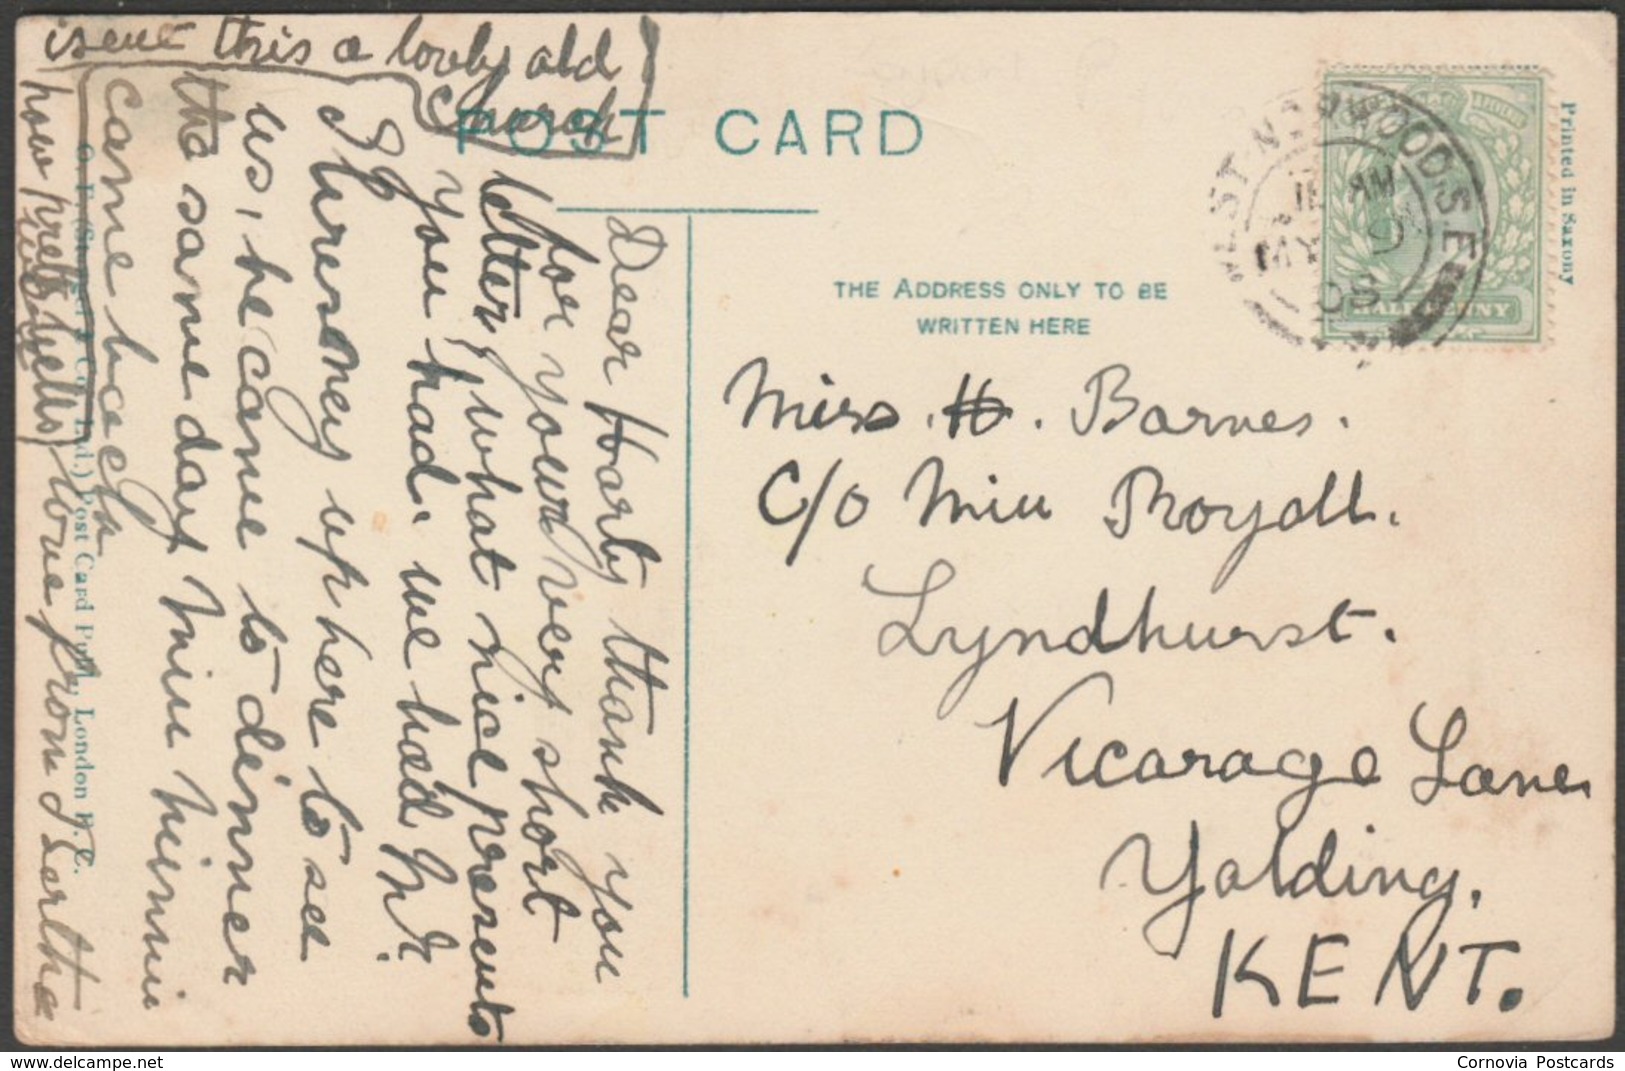 POST CARD
THE ADDRESS ONLY TO BE
WRITTEN HERE
Printed in Saxony
WEST NORWOOD. S.E.
11 AM
MY
HALFPENNY
Miss. H. Barnes.
C/o Miss Royall.
Lyndhurst.
Vicarage Lane
Yalding.
KENT.
Dear thank you
for your very short
letter, what nice presents
you had. we had Mr.
up here to see
us, he came to dinner
the same day Miss Minnie
came back
love from
isent this a lovely old
Church
how pretty
Co. Ltd.) Post Card Pub., London E.C.
Cornovia Postcards
www.delcampe.net